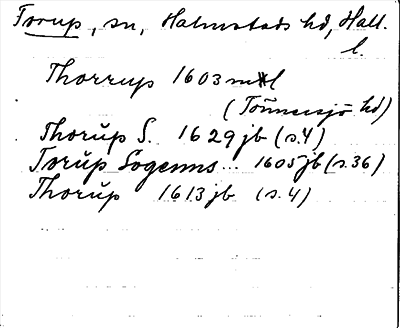 Torup, sn, Halmstads hd, Hall.
l.
Thorrup 1603 mtl
(Tönnersjö hd)
Thorŭp S. 1629 jb (s.4)
Torŭp Sogenns... 1605 jb (s.36)
Thorŭp 1613 jb (s.4)